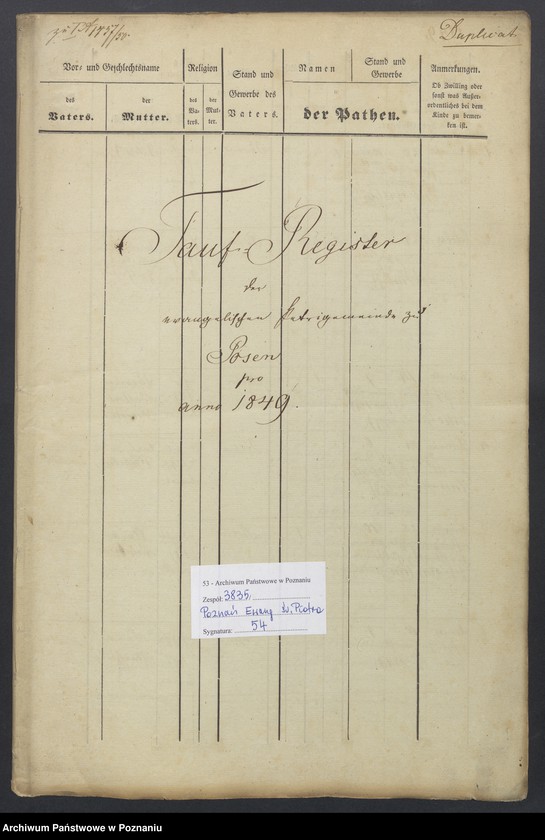 Duplicat.
Vor- und Geschlechtsname
Religion
Stand und
Gewerbe des
Vaters.
Namen
Stand und
Gewerbe
Anmerkungen.
des
Vaters.
der
Mutter.
des
Va-
ters.
der
Mut-
ter.
der Pathen.
Ob Zwilling oder
sonst was Außer-
ordentliches bei dem
Kinde zu bemer-
ken ist.
Tauf-Register
der
evangelischen Petrigemeinde zu
Posen
pro
anno 1849.
53 - Archiwum Państwowe w Poznaniu
Zespół: 3835
Poznań Ewang św. Piotra
Sygnatura: 54
Archiwum Państwowe w Poznaniu